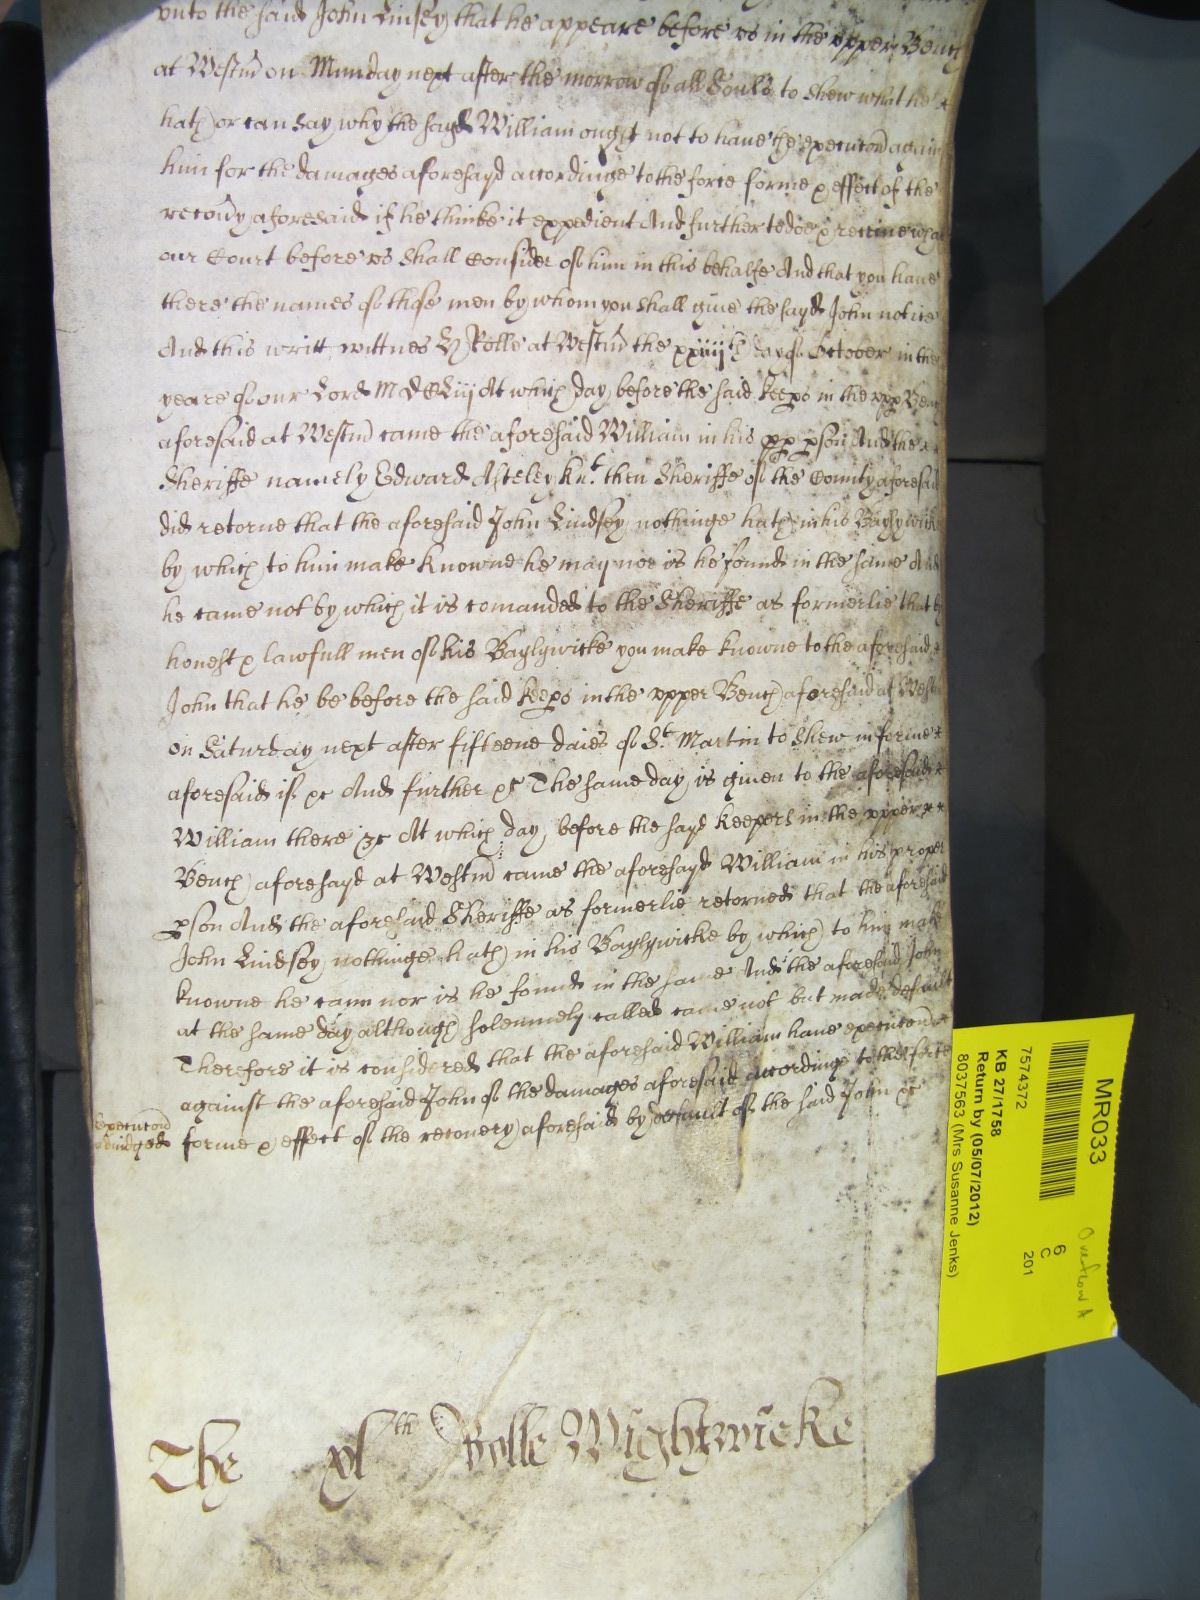 vnto the said John Linsey that he appeare before vs in the vpper Bench
at Westm̃ on Munday next after the morrow of all Souls to shew what he
hath or can say why the sayd William ought not to haue his execucon against
him for the damages aforesayd accordinge to the force forme & effect of the
recouy aforesaid if he thinke it expedient And further to doe & receiue what
our Court before vs shall Consider of him in this behalfe And that you haue
there the names of those men by whom you shall giue the sayd John notice
And this writt wittnes H Rolle at Westm̃ the xxiiijth day of October in the
yeare of our Lord MDCLiij At which day before the said Keeps in the vpp Bench
aforesaid at Westm̃ came the aforesaid William in his pp pson And the
Sheriffe namely Edward Asteley Knt. then Sheriffe of the County aforesaid
did retorne that the aforesaid John Lindsey nothinge hath in his Baylywicke
by which to him make knowne he may nor is he found in the same And
he came not by which it is comanded to the Sheriffe as formerlie that by
honest & lawfull men of his Baylywicke you make knowne to the aforesaid
John that he be before the said Keeps in the vpper Bench aforesaid at Westm̃
on Saturday next after fifteene daies of St. Martin to shew in forme
aforesaid if &c And further &c The same day is giuen to the aforesaid
William there &c At which day before the sayd Keepers in the vpper
Bench aforesayd at Westm̃ came the aforesayd William in his proper
pson And the aforesaid Sheriffe as formerlie retorned that the aforesaid
John Lindsey nothinge hath in his Baylywicke by which to him make
knowne he cann nor is he found in the same And the aforesaid John
at the same day although solemnely called came not but made default
Therefore it is considered that the aforesaid William haue execucon
against the aforesaid John of the damages aforesaid accordinge to the force
forme & effect of the recouery aforesaid by default of the said John &c
Execucon
adiudged
The xlth Rolle Wightwicke
MR033
7574372
KB 27/1758
Return by (05/07/2012)
8037563 (Mrs Susanne Jenks)
6
C
201
Overflow A